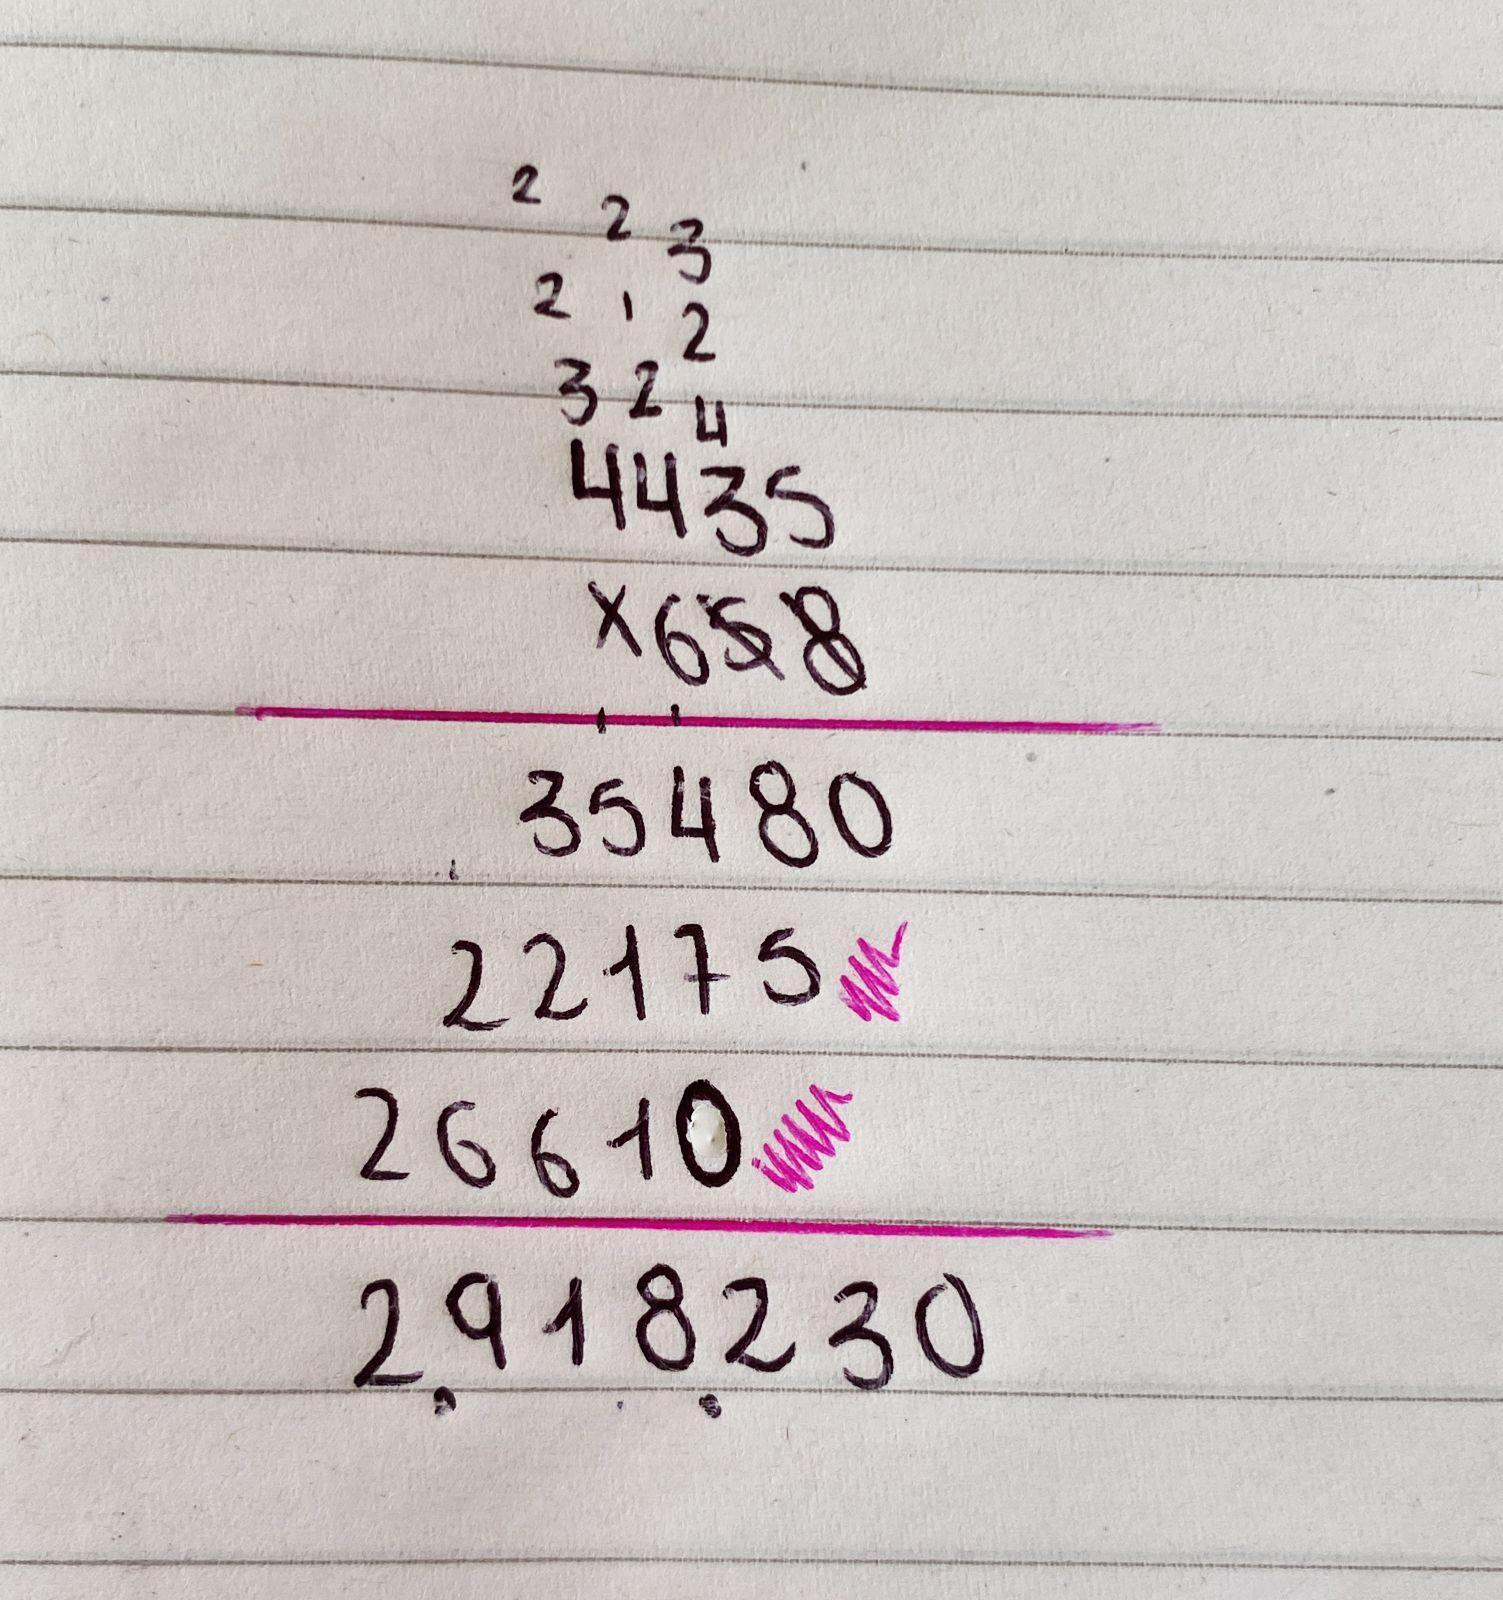 2 2 3
2 1 2
3 2 4
4435
x658
35480
22175
26610
2.918.230